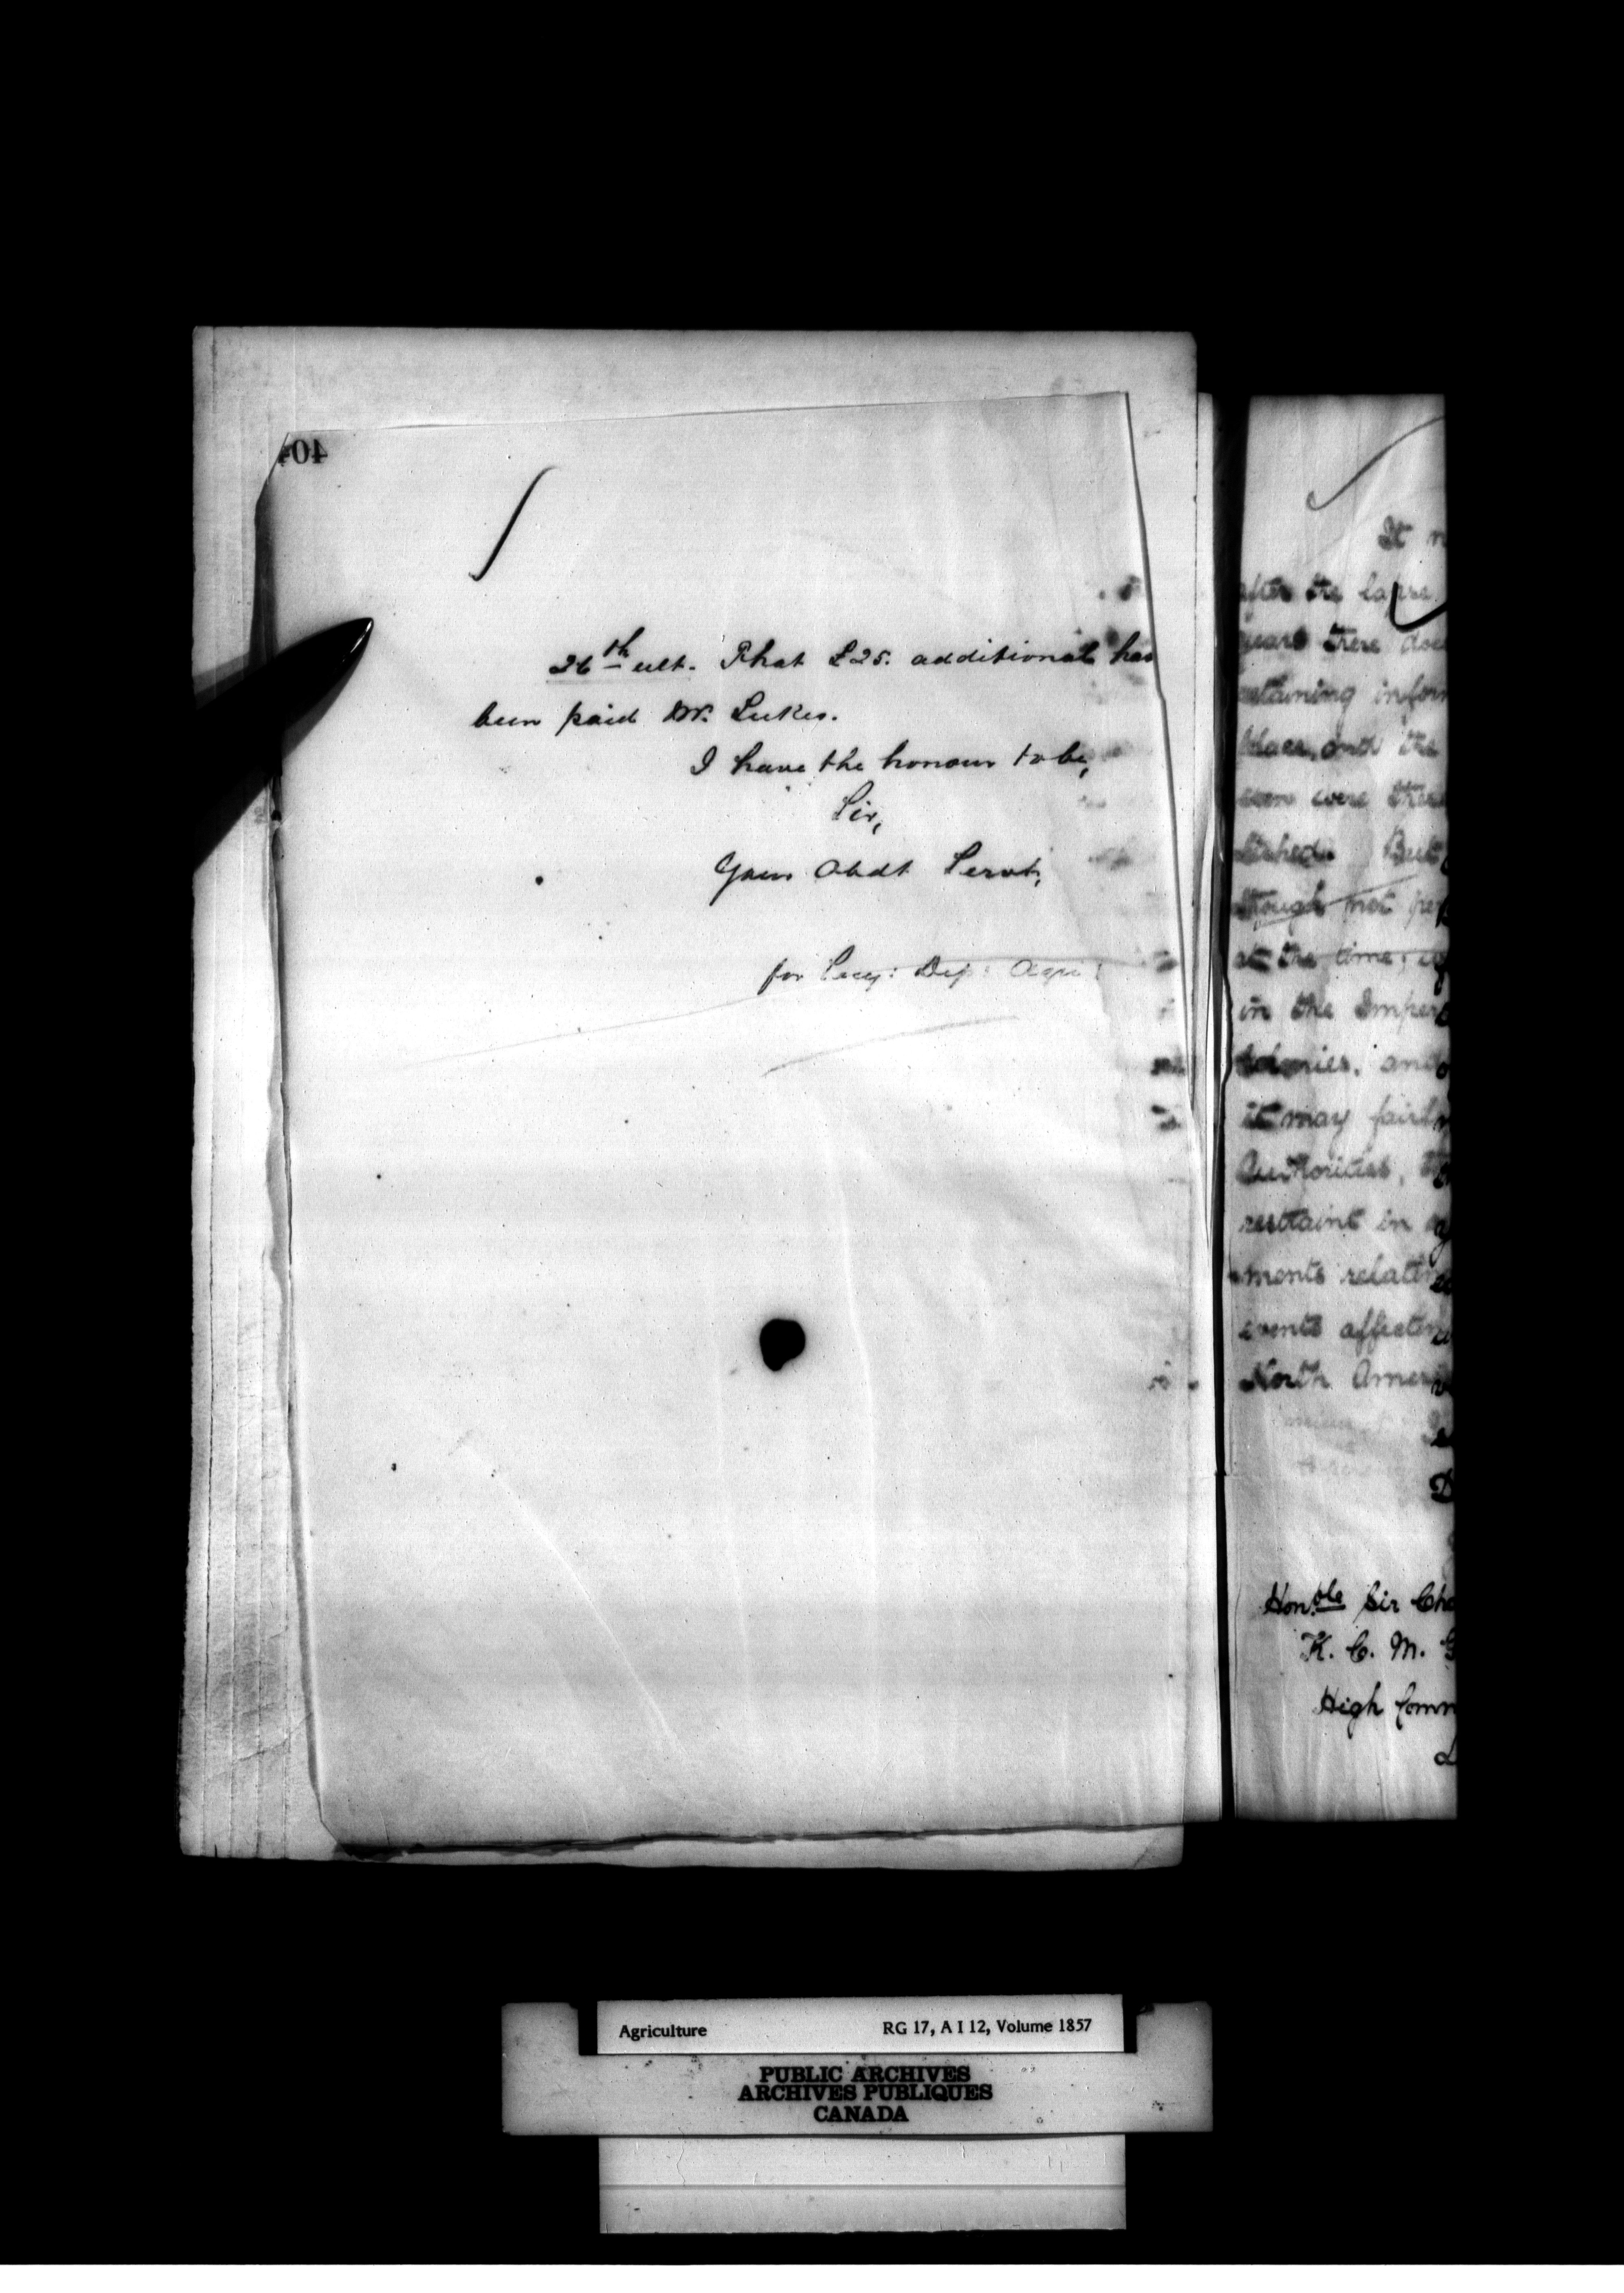 404
26th ult. That £25. additional has
been paid Mr. Lukes.
I have the honour to be,
Sir,
Your Obdt Servt,
for Secy: Dep: Agri:
It
after the lapse
years there does
obtaining inform
class, and the
even were these
lished. But
though not per
at the time,
in the Imper
Colonies, and
it may fairly
Authorities,
restraint in
ments relatin
events affectin
North Ameri
Honble Sir Cha
K. C. M. G
High Comm
Agriculture RG 17, A I 12, Volume 1857
PUBLIC ARCHIVES
ARCHIVES PUBLIQUES
CANADA